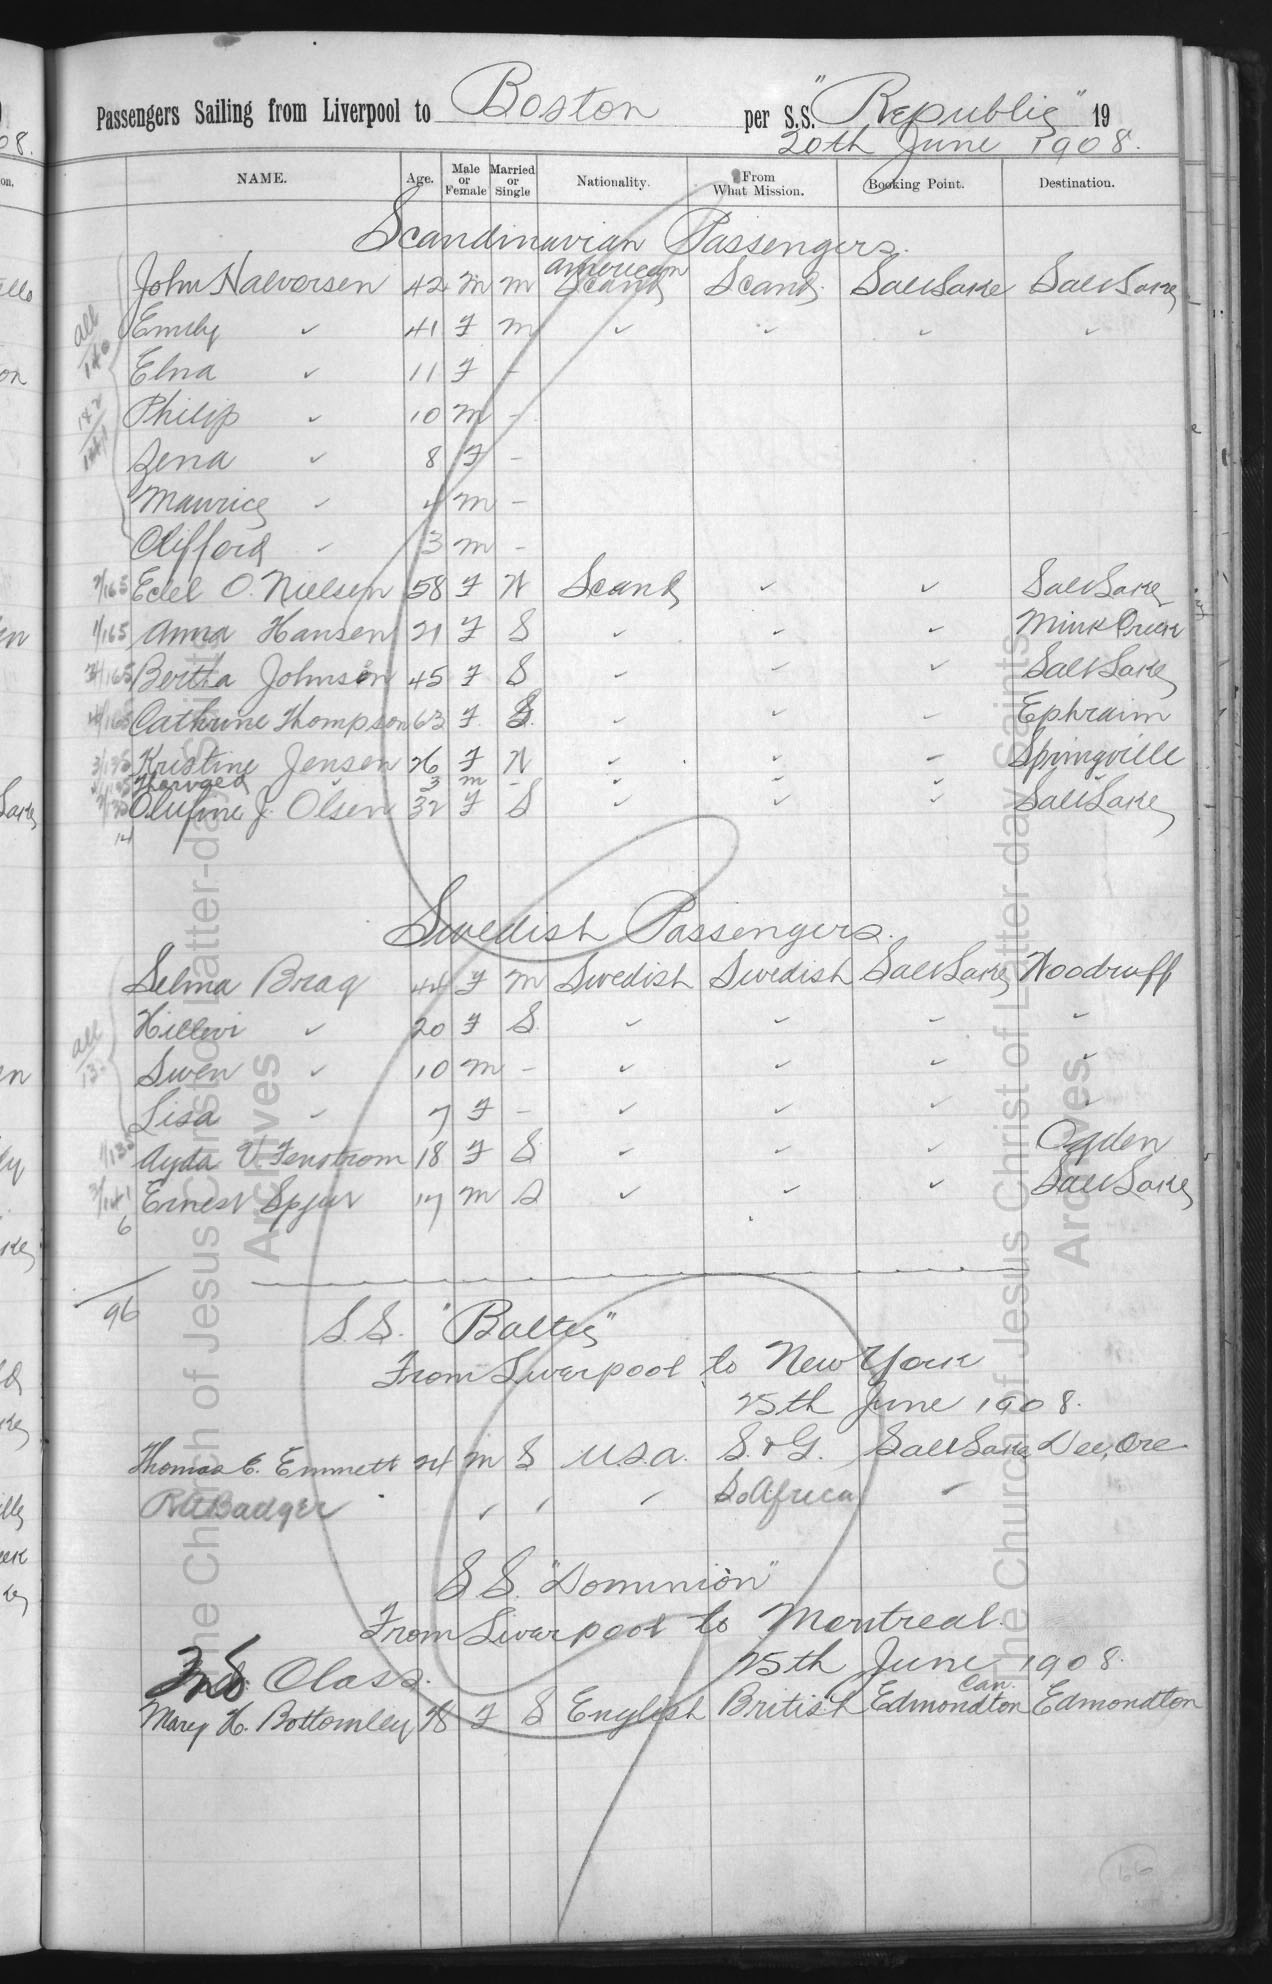 Passengers Sailing from Liverpool to Boston per S.S. "Republic" 19
20th June 1908.
NAME. Age. Male or Female Married or Single Nationality. From What Mission. Booking Point. Destination.
Scandinavian Passengers.
American
John Halvorsen 42 M M Scand Scand. Salt Lake Salt Lake
all Emily ✓ 41 F M ✓ ✓ ✓ ✓
Elna ✓ 11 F -
Philip ✓ 10 M -
Lena ✓ 8 F -
Maurice ✓ 4 M -
Clifford ✓ 3 M -
2/165 Edel O. Nielsen 58 F W Scand ✓ ✓ Salt Lake
1/165 Anna Hansen 21 F S ✓ ✓ ✓ Mink Creek
Bertha Johnson 45 F S ✓ ✓ ✓ Salt Lake
Cathrine Thompson 63 F. S. ✓ ✓ ✓ Ephraim
Kristine Jensen 26 F W ✓ ✓ ✓ Springville
✓ 3 M - ✓ ✓ ✓ ✓
Olufine J. Olsen 32 F S ✓ ✓ ✓ Salt Lake
14
Swedish Passengers.
Selma Brag 44 F M Swedish Swedish Salt Lake Woodruff
all Hillevi ✓ 20 F S. ✓ ✓ ✓ ✓
Swen ✓ 10 M - ✓ ✓ ✓ ✓
Lisa ✓ 7 F - ✓ ✓ ✓ ✓
1/135 Ayda V. Fenstrom 18 F S. ✓ ✓ ✓ Ogden
Ernest Spjut 17 M S ✓ ✓ ✓ Salt Lake
6
96
S.S. "Baltic"
From Liverpool to New York
25th June 1908.
Thomas E. Emmett 24 M S U.S.A. S. & G. Salt Lake Dee, Ore.
Badger ✓ ✓ ✓ So Africa ✓
S.S. "Dominion"
From Liverpool to Montreal.
25th June 1908.
2nd Class.
Can.
Mary H. Bottomley F S English British Edmondton Edmondton
66
The Church of Jesus Christ of Latter-day Saints
Archives
The Church of Jesus Christ of Latter-day Saints
Archives